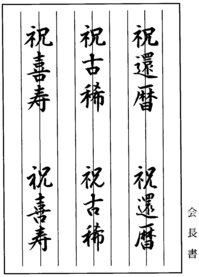 祝還暦
祝還暦
祝古稀
祝古稀
祝喜寿
祝喜寿
会長書